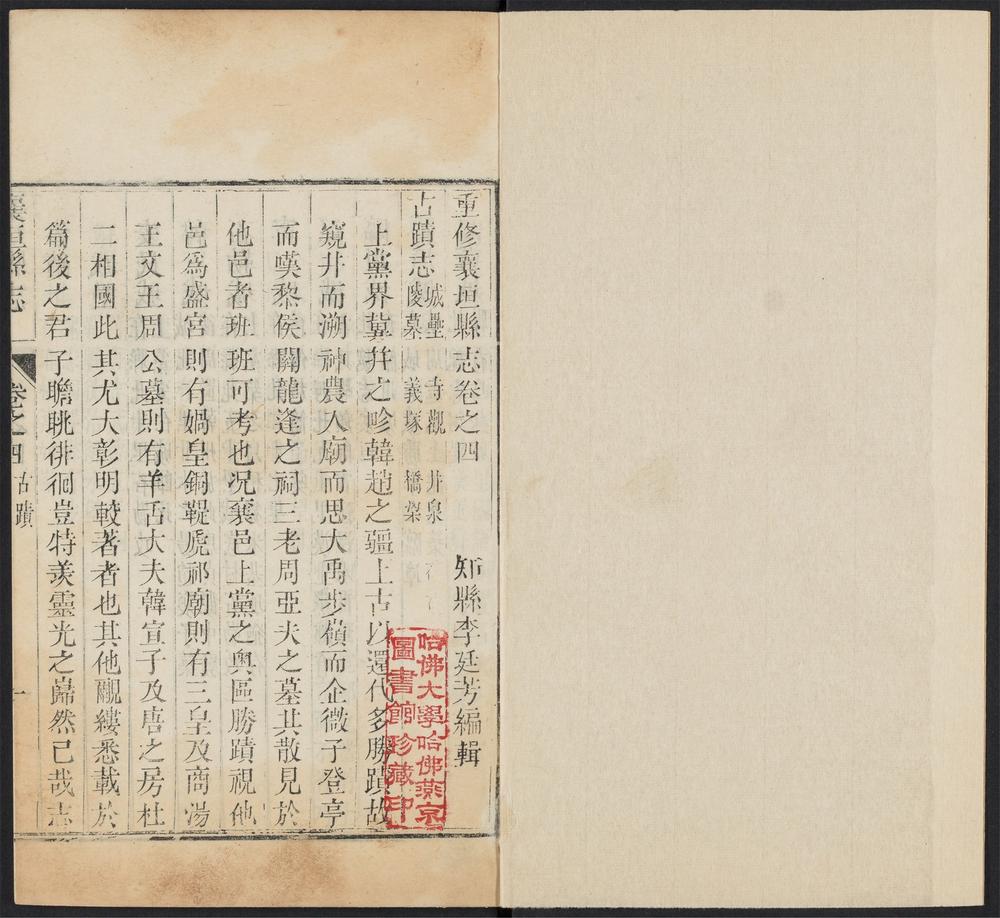 重修襄垣縣志卷之四 知縣李廷芳編輯
古蹟志 城壘 寺觀 井泉 陵墓 義塚 橋梁
上黨界冀并之畛韓趙之疆上古以還代多勝蹟故
窺井而溯神農入廟而思大禹步嶺而企微子登亭
而嘆黎侯關龍逢之祠三老周亞夫之墓其散見於
他邑者班班可考也况襄邑上黨之輿區勝蹟視他
邑爲盛宮則有媧皇銅鞮虒祁廟則有三皇及商湯
王文王周公墓則有羊舌大夫韓宣子及唐之房杜
二相國此其尤大彰明較著者也其他覼縷悉載於
篇後之君子瞻眺徘徊豈特羡靈光之巋然已哉志
襄垣縣志 卷之四 古蹟 一
哈佛大學哈佛燕京
圖書館珍藏印